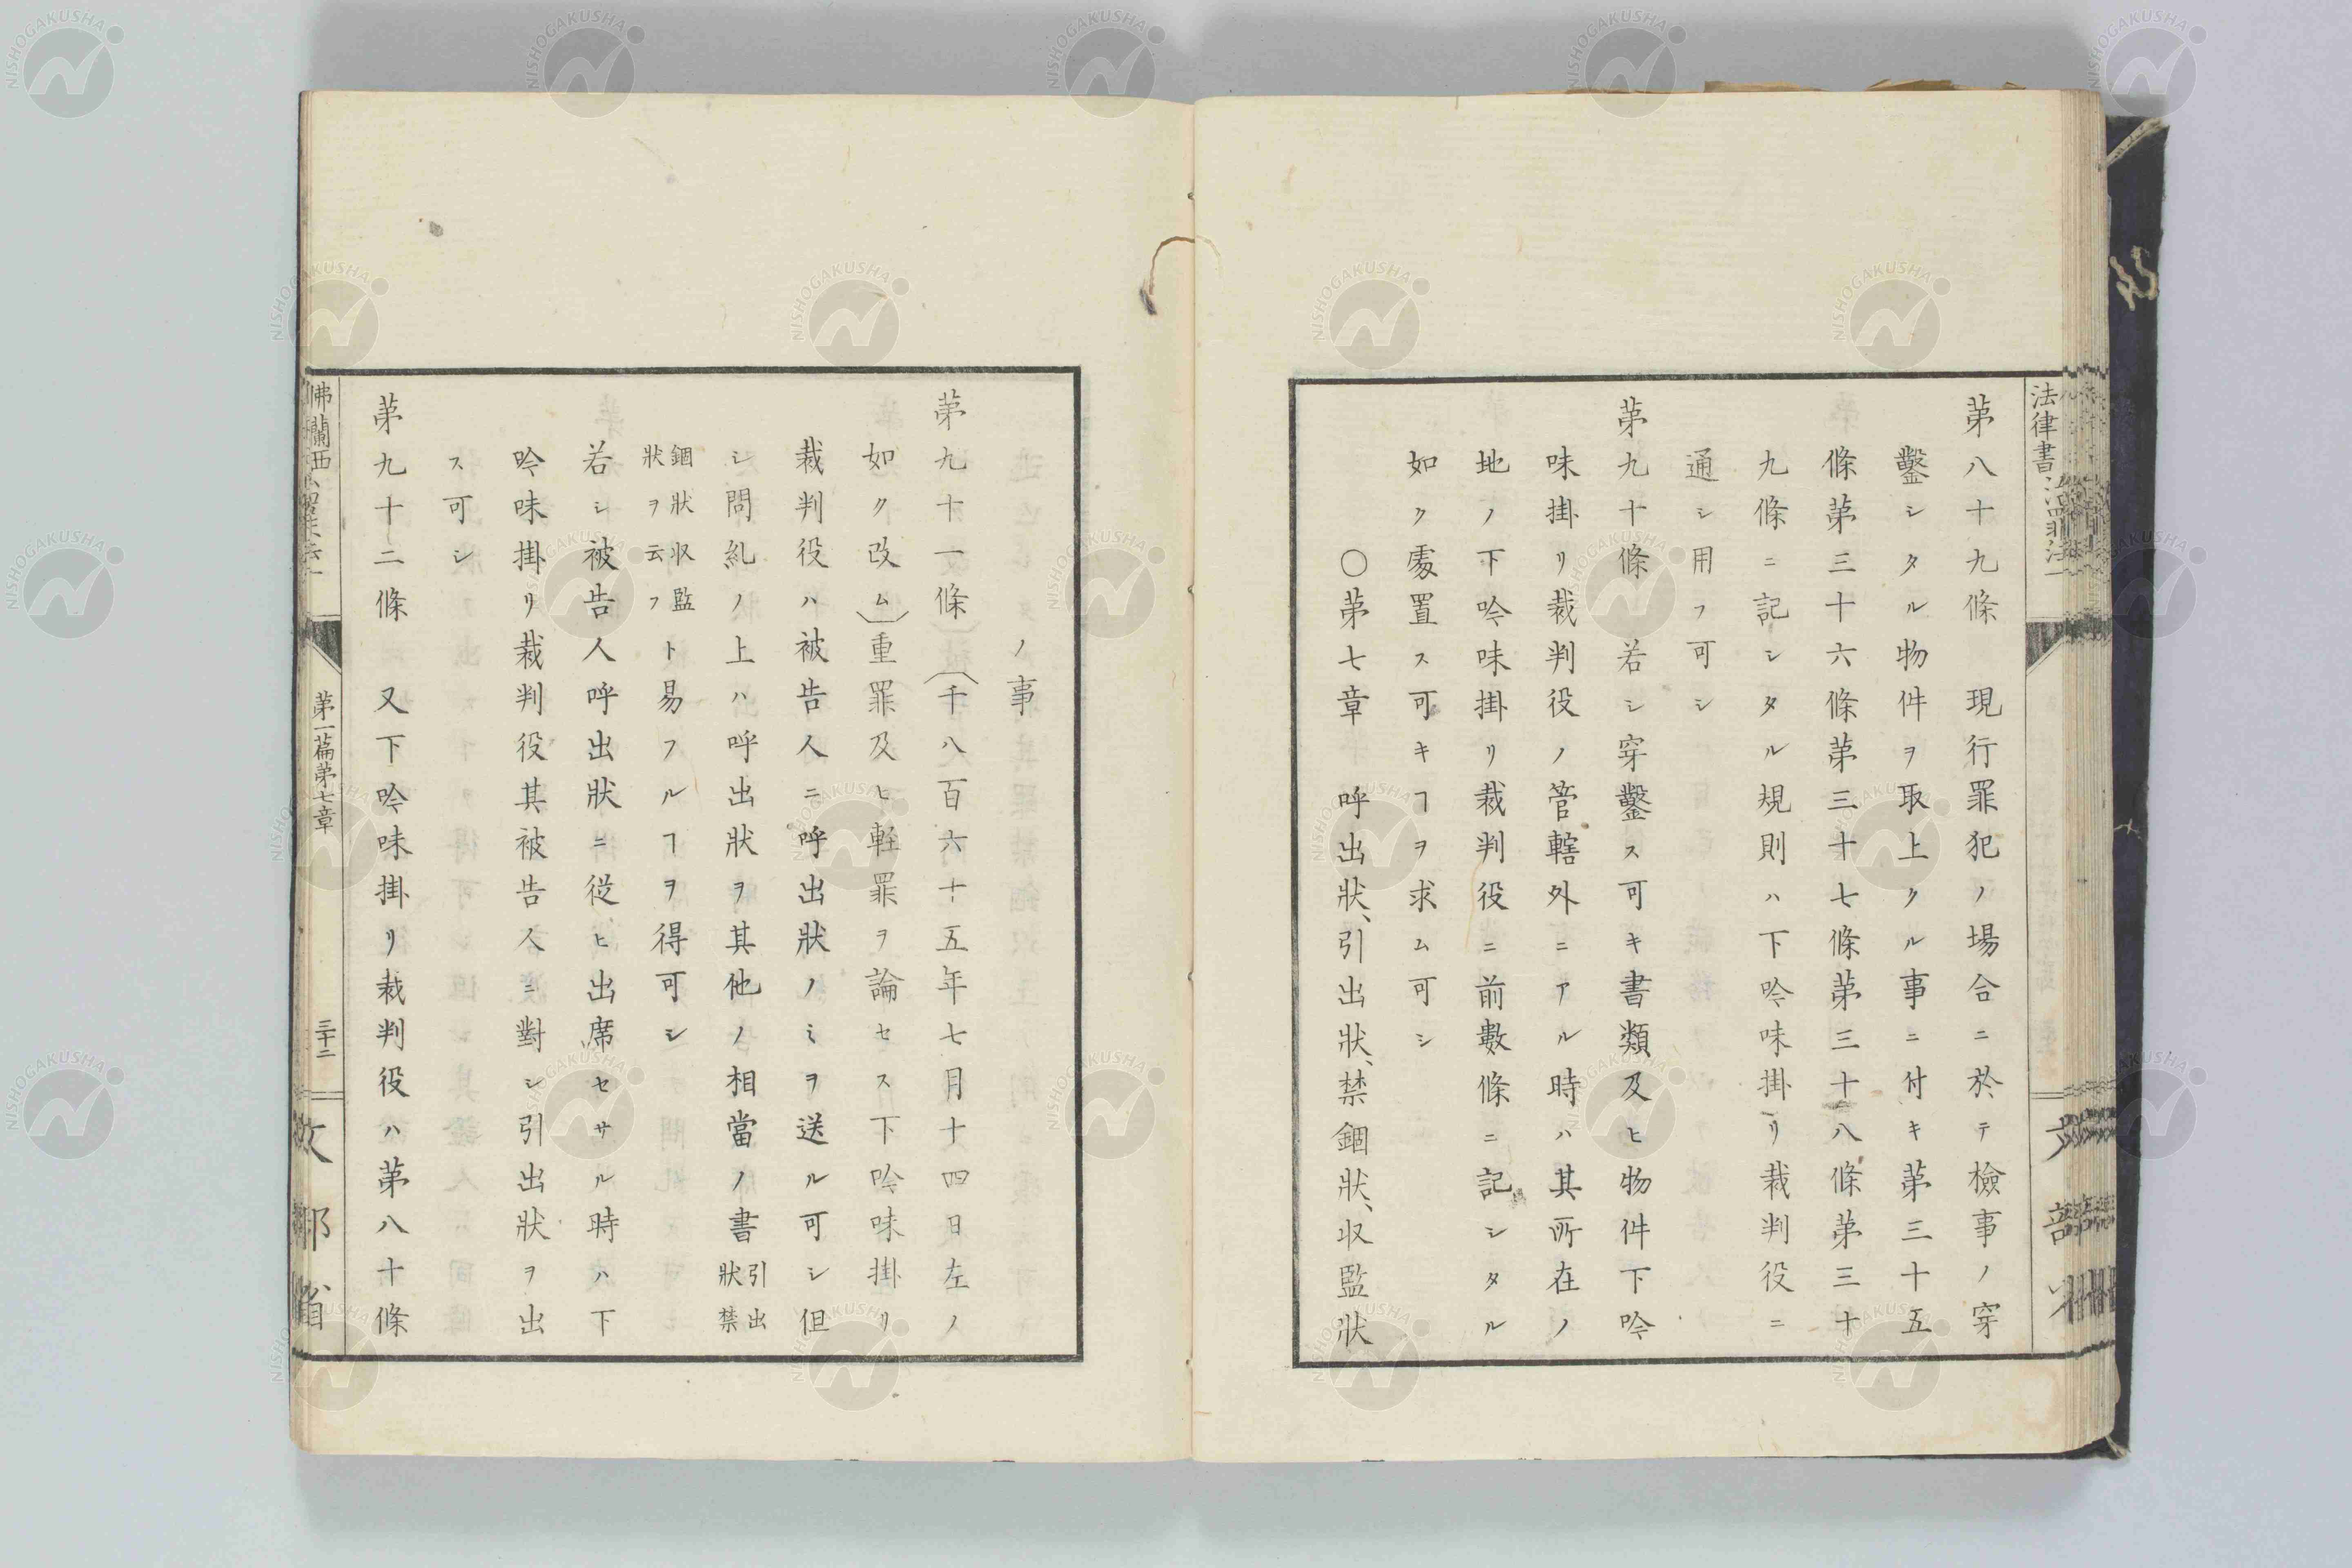 第八十九條　現行罪犯ノ場合ニ於テ檢事ノ穿
鑿シタル物件ヲ取上クル事ニ付キ第三十五
條第三十六條第三十七條第三十八條第三十
九條ニ記シタル規則ハ下吟味掛リ裁判役ニ
通シ用フ可シ
第九十條　若シ穿鑿ス可キ書類及ヒ物件下吟
味掛リ裁判役ノ管轄外ニアル時ハ其所在ノ
地ノ下吟味掛リ裁判役ニ前數條ニ記シタル
如ク處置ス可キヿヲ求ム可シ
〇第七章　呼出狀、引出狀、禁錮狀、収監狀
ノ事
第九十一條（千八百六十五年七月十四日左ノ
如ク改ム）重罪及ヒ軽罪ヲ論セス下吟味掛リ
裁判役ハ被告人ニ呼出狀ノミヲ送ル可シ但
シ問糺ノ上ハ呼出狀ヲ其他ノ相當ノ書引出狀禁
錮狀収監狀ヲ云フト易フルヿヲ得可シ
若シ被告人呼出狀ニ從ヒ出席セサル時ハ下
吟味掛リ裁判役其被告人ニ對シ引出狀ヲ出
ス可シ
第九十二條　又下吟味掛リ裁判役ハ第八十條
第一篇第七章
三十二
法律書
NISHOGAKUSHA